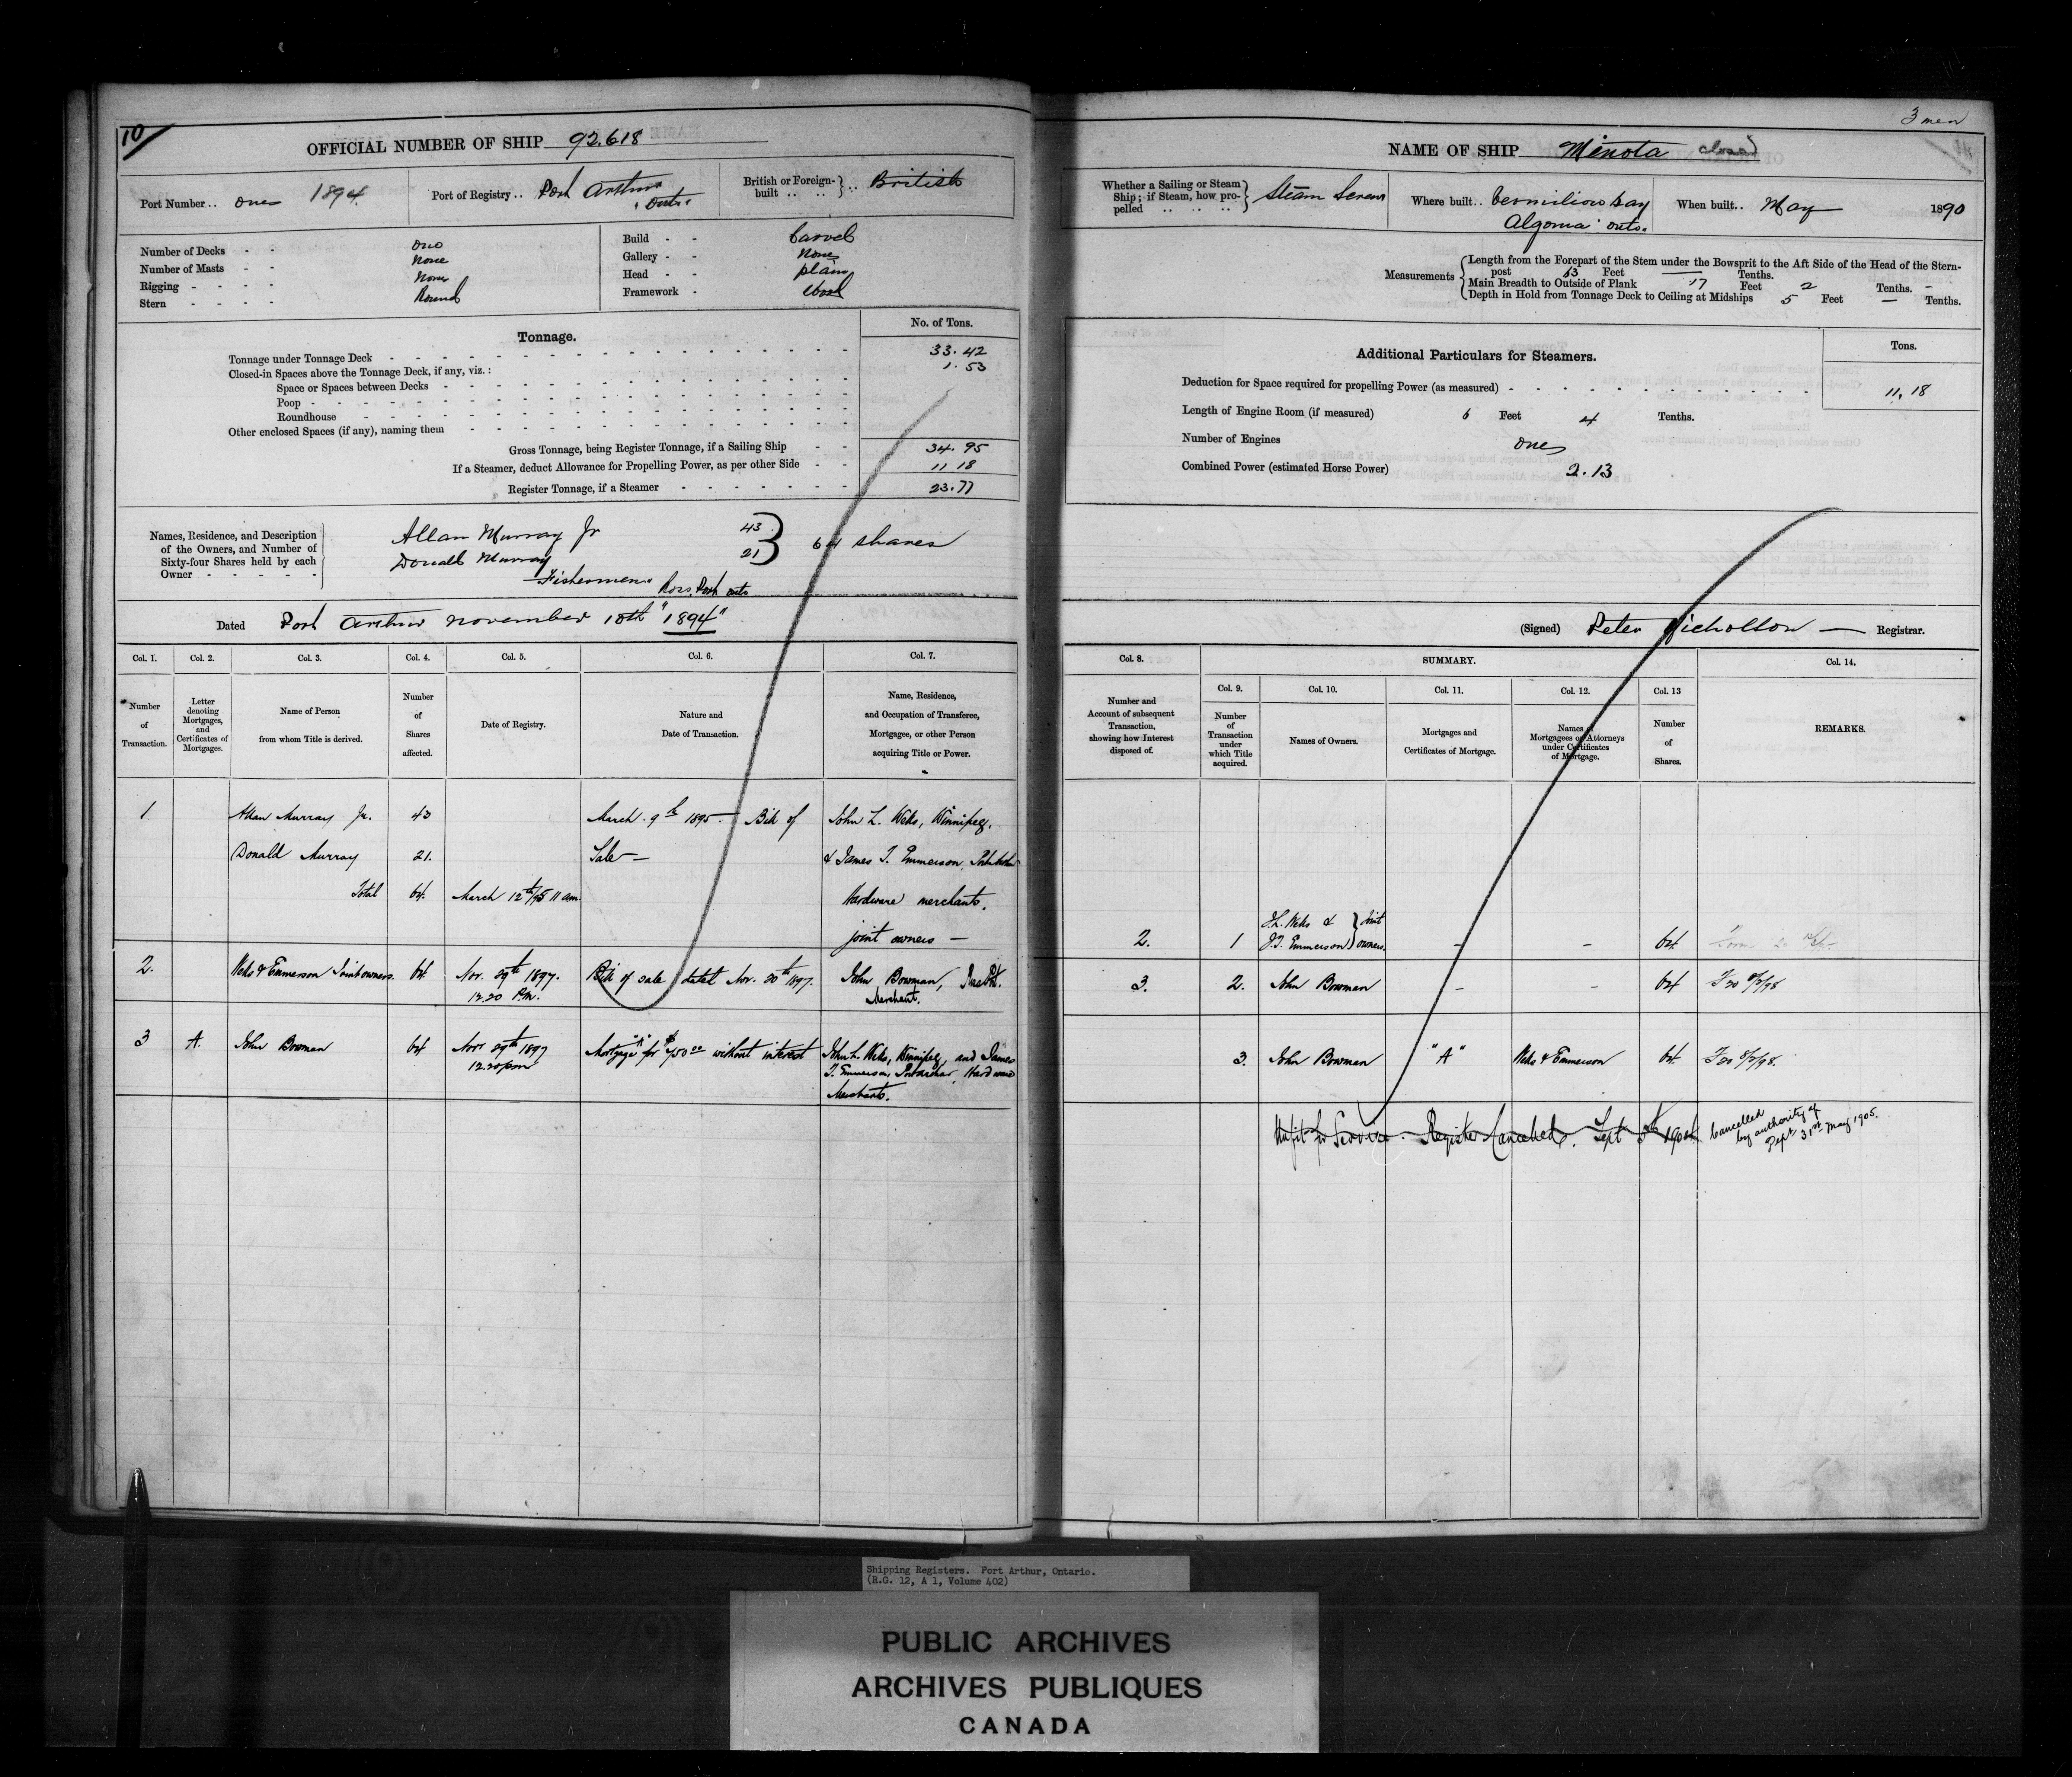 10
OFFICIAL NUMBER OF SHIP 92.618
Port Number .. one 1894
Port of Registry .. Port Arthur
Onto
British or Foreign-built .. .. } .. British
Number of Decks - - one
Number of Masts - - None
Rigging - - - - None
Stern - - - - Round
Build - - Carvel
Gallery - - None
Head - - plain
Framework - Wood
Tonnage.
No. of Tons.
Tonnage under Tonnage Deck 33.42
Closed-in Spaces above the Tonnage Deck, if any, viz.: 1.53
Space or Spaces between Decks
Poop
Roundhouse
Other enclosed Spaces (if any), naming them
Gross Tonnage, being Register Tonnage, if a Sailing Ship 34.95
If a Steamer, deduct Allowance for Propelling Power, as per other Side 11 18
Register Tonnage, if a Steamer 23.77
Names, Residence, and Description
of the Owners, and Number of
Sixty-four Shares held by each
Owner
Allan Murray Jr 43
Donald Murray 21
64 shares
Fishermen Ross Port onto
Dated Port Arthur november 10th "1894"
Col. 1. Col. 2. Col. 3. Col. 4. Col. 5. Col. 6. Col. 7.
Number
of
Transaction.
Letter
denoting
Mortgages,
and
Certificates of
Mortgages.
Name of Person
from whom Title is derived.
Number
of
Shares
affected.
Date of Registry.
Nature and
Date of Transaction.
Name, Residence,
and Occupation of Transferee,
Mortgagee, or other Person
acquiring Title or Power.
1 Allan Murray Jr. 43 March 9th 1895 - Bill of John L. Wells, Winnipeg,
Donald Murray 21. Sale - & James T. Emmerson,
Total 64. March 12th/95 11 am. Hardware merchants,
joint owners -
2. Wells & Emmerson Joint owners. 64 Nov. 29th 1897. Bill of sale dated Nov. 20th 1897. John Bowman,
12.20 P.m. Merchant.
3 A. John Bowman 64 Nov 29th 1897 Mortgage "A" for without interest John L. Wells, Winnipeg, and James
12.20 pm T. Emmerson, Port Arthur, Hardware
Merchants.
3 men
NAME OF SHIP Minota closed
Whether a Sailing or Steam
Ship; if Steam, how pro-
pelled } Steam Screw
Where built .. Vermilion bay
Algoma onto.
When built .. May 1890
Measurements
Length from the Forepart of the Stem under the Bowsprit to the Aft Side of the Head of the Stern-
post 63 Feet — Tenths.
Main Breadth to Outside of Plank 17 Feet 2 Tenths.
Depth in Hold from Tonnage Deck to Ceiling at Midships 5 Feet — Tenths.
Additional Particulars for Steamers.
Tons.
Deduction for Space required for propelling Power (as measured) 11.18
Length of Engine Room (if measured) 6 Feet 4 Tenths.
Number of Engines one
Combined Power (estimated Horse Power) 2.13
(Signed) Peter Nicholson — Registrar.
Col. 8. SUMMARY. Col. 14.
Col. 9. Col. 10. Col. 11. Col. 12. Col. 13
Number and
Account of subsequent
Transaction,
showing how Interest
disposed of.
Number
of
Transaction
under
which Title
acquired.
Names of Owners.
Mortgages and
Certificates of Mortgage.
Names of
Mortgagees or Attorneys
under Certificates
of Mortgage.
Number
of
Shares.
REMARKS.
J.L. Wells & } Joint
2. 1 J.T. Emmerson } owners. - - 64 Form 20
3. 2. John Bowman - - 64
3. John Bowman "A" Wells & Emmerson 64
Unfit for Service. Register Cancelled. Sept 1904
Cancelled
by authority of
Dept 31st May 1905.
Shipping Registers. Port Arthur, Ontario.
(R.G. 12, A 1, Volume 402)
PUBLIC ARCHIVES
ARCHIVES PUBLIQUES
CANADA